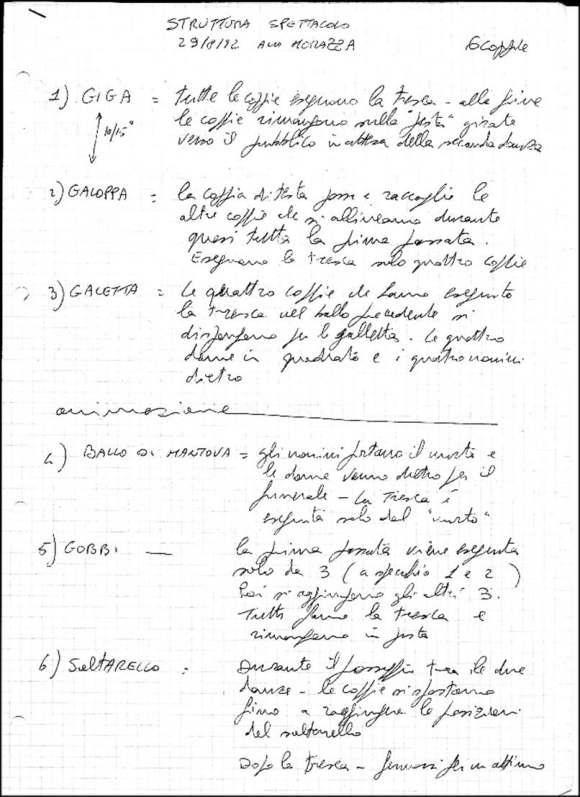 STRUTTURA SPETTACOLO
29/8/92 ALLA MORAZZA 6 coppie
1) GIGA = tutte le coppie eseguono la tresca - alla fine
10/15"
le coppie rimangono sulla "pista" girate
verso il pubblico in attesa della seconda danza
2) GALOPPA = la coppia di testa passa e raccoglie le
altre coppie che si allineano durante
quasi tutta la prima passata.
Eseguono la tresca solo quattro coppie
3) GALETTA = Le quattro coppie che hanno eseguito
la tresca nel ballo precedente si
dispongono per la galletta. Le quattro
donne in quadrato e i quattro uomini
dietro
animazione
4) BALLO DI MANTOVA = gli uomini portano il morto e
le donne vanno dietro per il
funerale - La Tresca è
eseguita solo dal "morto"
5) GOBBI — la prima passata viene eseguita
solo da 3 (a specchio 1 e 2)
Poi si aggiungono gli altri 3.
Tutti fanno la tresca e
rimangono in pista
6) SALTARELLO : Durante il passaggio tra le due
danze - le coppie si spostano
fino a raggiungere le posizioni
del saltarello
Dopo la tresca - fermarsi per un attimo